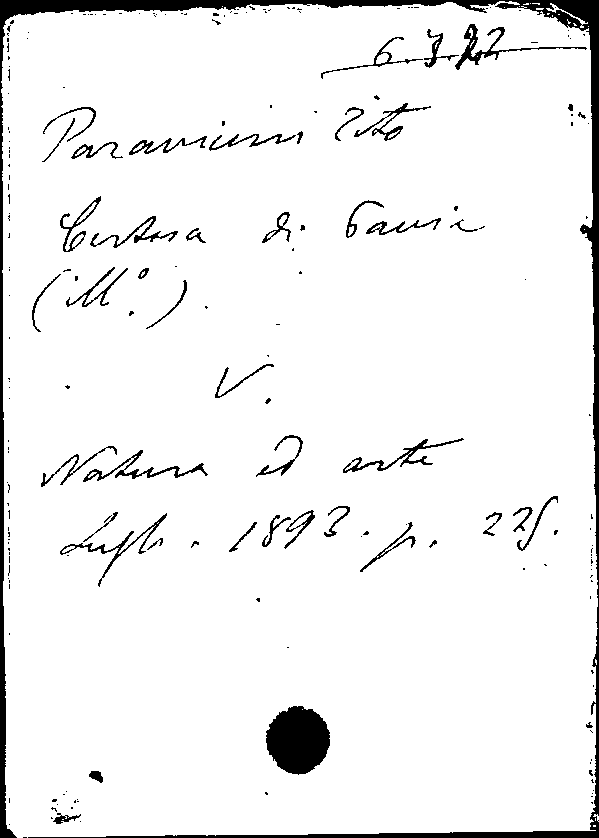 6.3.22
Paravicini Tito
Certosa di Pavia
(Mº.).
V.
Natura ed arte
Luglo. 1893. p. 225.